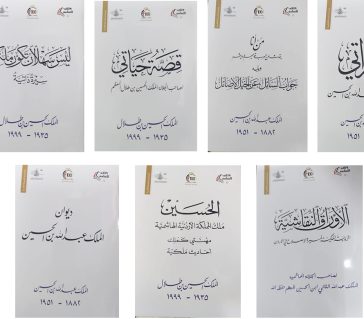 من أنا
جواب السائل عن الخيل الأصائل
الملك عبد الله بن الحسين
١٨٨٢ - ١٩٥١
قصة حياتي
لصاحب الجلالة الملك الحسين بن طلال المعظم
الملك الحسين بن طلال
١٩٣٥ - ١٩٩٩
ليس سهلا أن تكون ملكا
سيرة ذاتية
الملك الحسين بن طلال
١٩٣٥ - ١٩٩٩
الأوراق النقاشية
لصاحب الجلالة الهاشمية
الملك عبد الله الثاني ابن الحسين المعظم حفظه الله
الحسين
ملك المملكة الأردنية الهاشمية
مهنتي كملك
أحاديث ملكية
الملك الحسين بن طلال
١٩٣٥ - ١٩٩٩
ديوان
الملك عبد الله بن الحسين
الملك عبد الله بن الحسين
١٨٨٢ - ١٩٥١